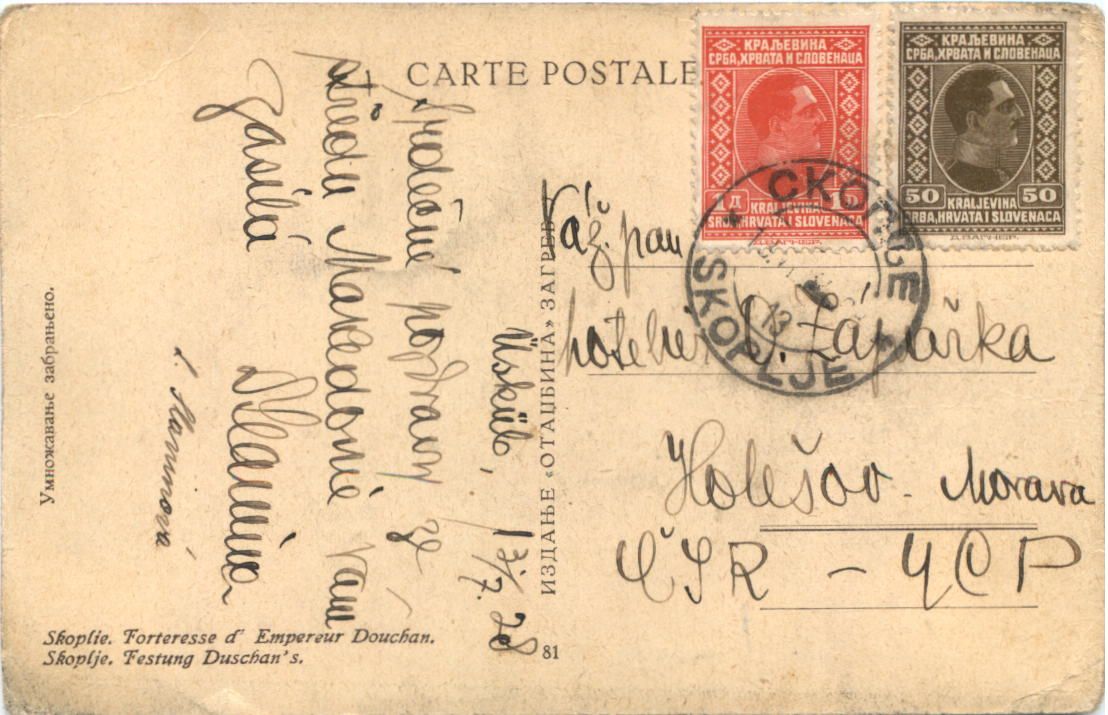 CARTE POSTALE
КРАЉЕВИНА
СРБА, ХРВАТА И СЛОВЕНАЦА
1 Д
KRALJEVINA
SRBA, HRVATA I SLOVENACA
КРАЉЕВИНА
СРБА, ХРВАТА И СЛОВЕНАЦА
50 50
KRALJEVINA
SRBA, HRVATA I SLOVENACA
СКОПЉЕ
SKOPLJE
Üsküb, 13/7. 28
Srdečné pozdravy ze
středu Makedonie Vám
zasílá
Váž. pan
hotelier
Holešov - Morava
ČSR - ЧСР
ИЗДАЊЕ «ОТАЏБИНА» ЗАГРЕБ
Умножавање забрањено.
Skoplie. Forteresse d' Empereur Douchan.
Skoplje. Festung Duschan's.
81